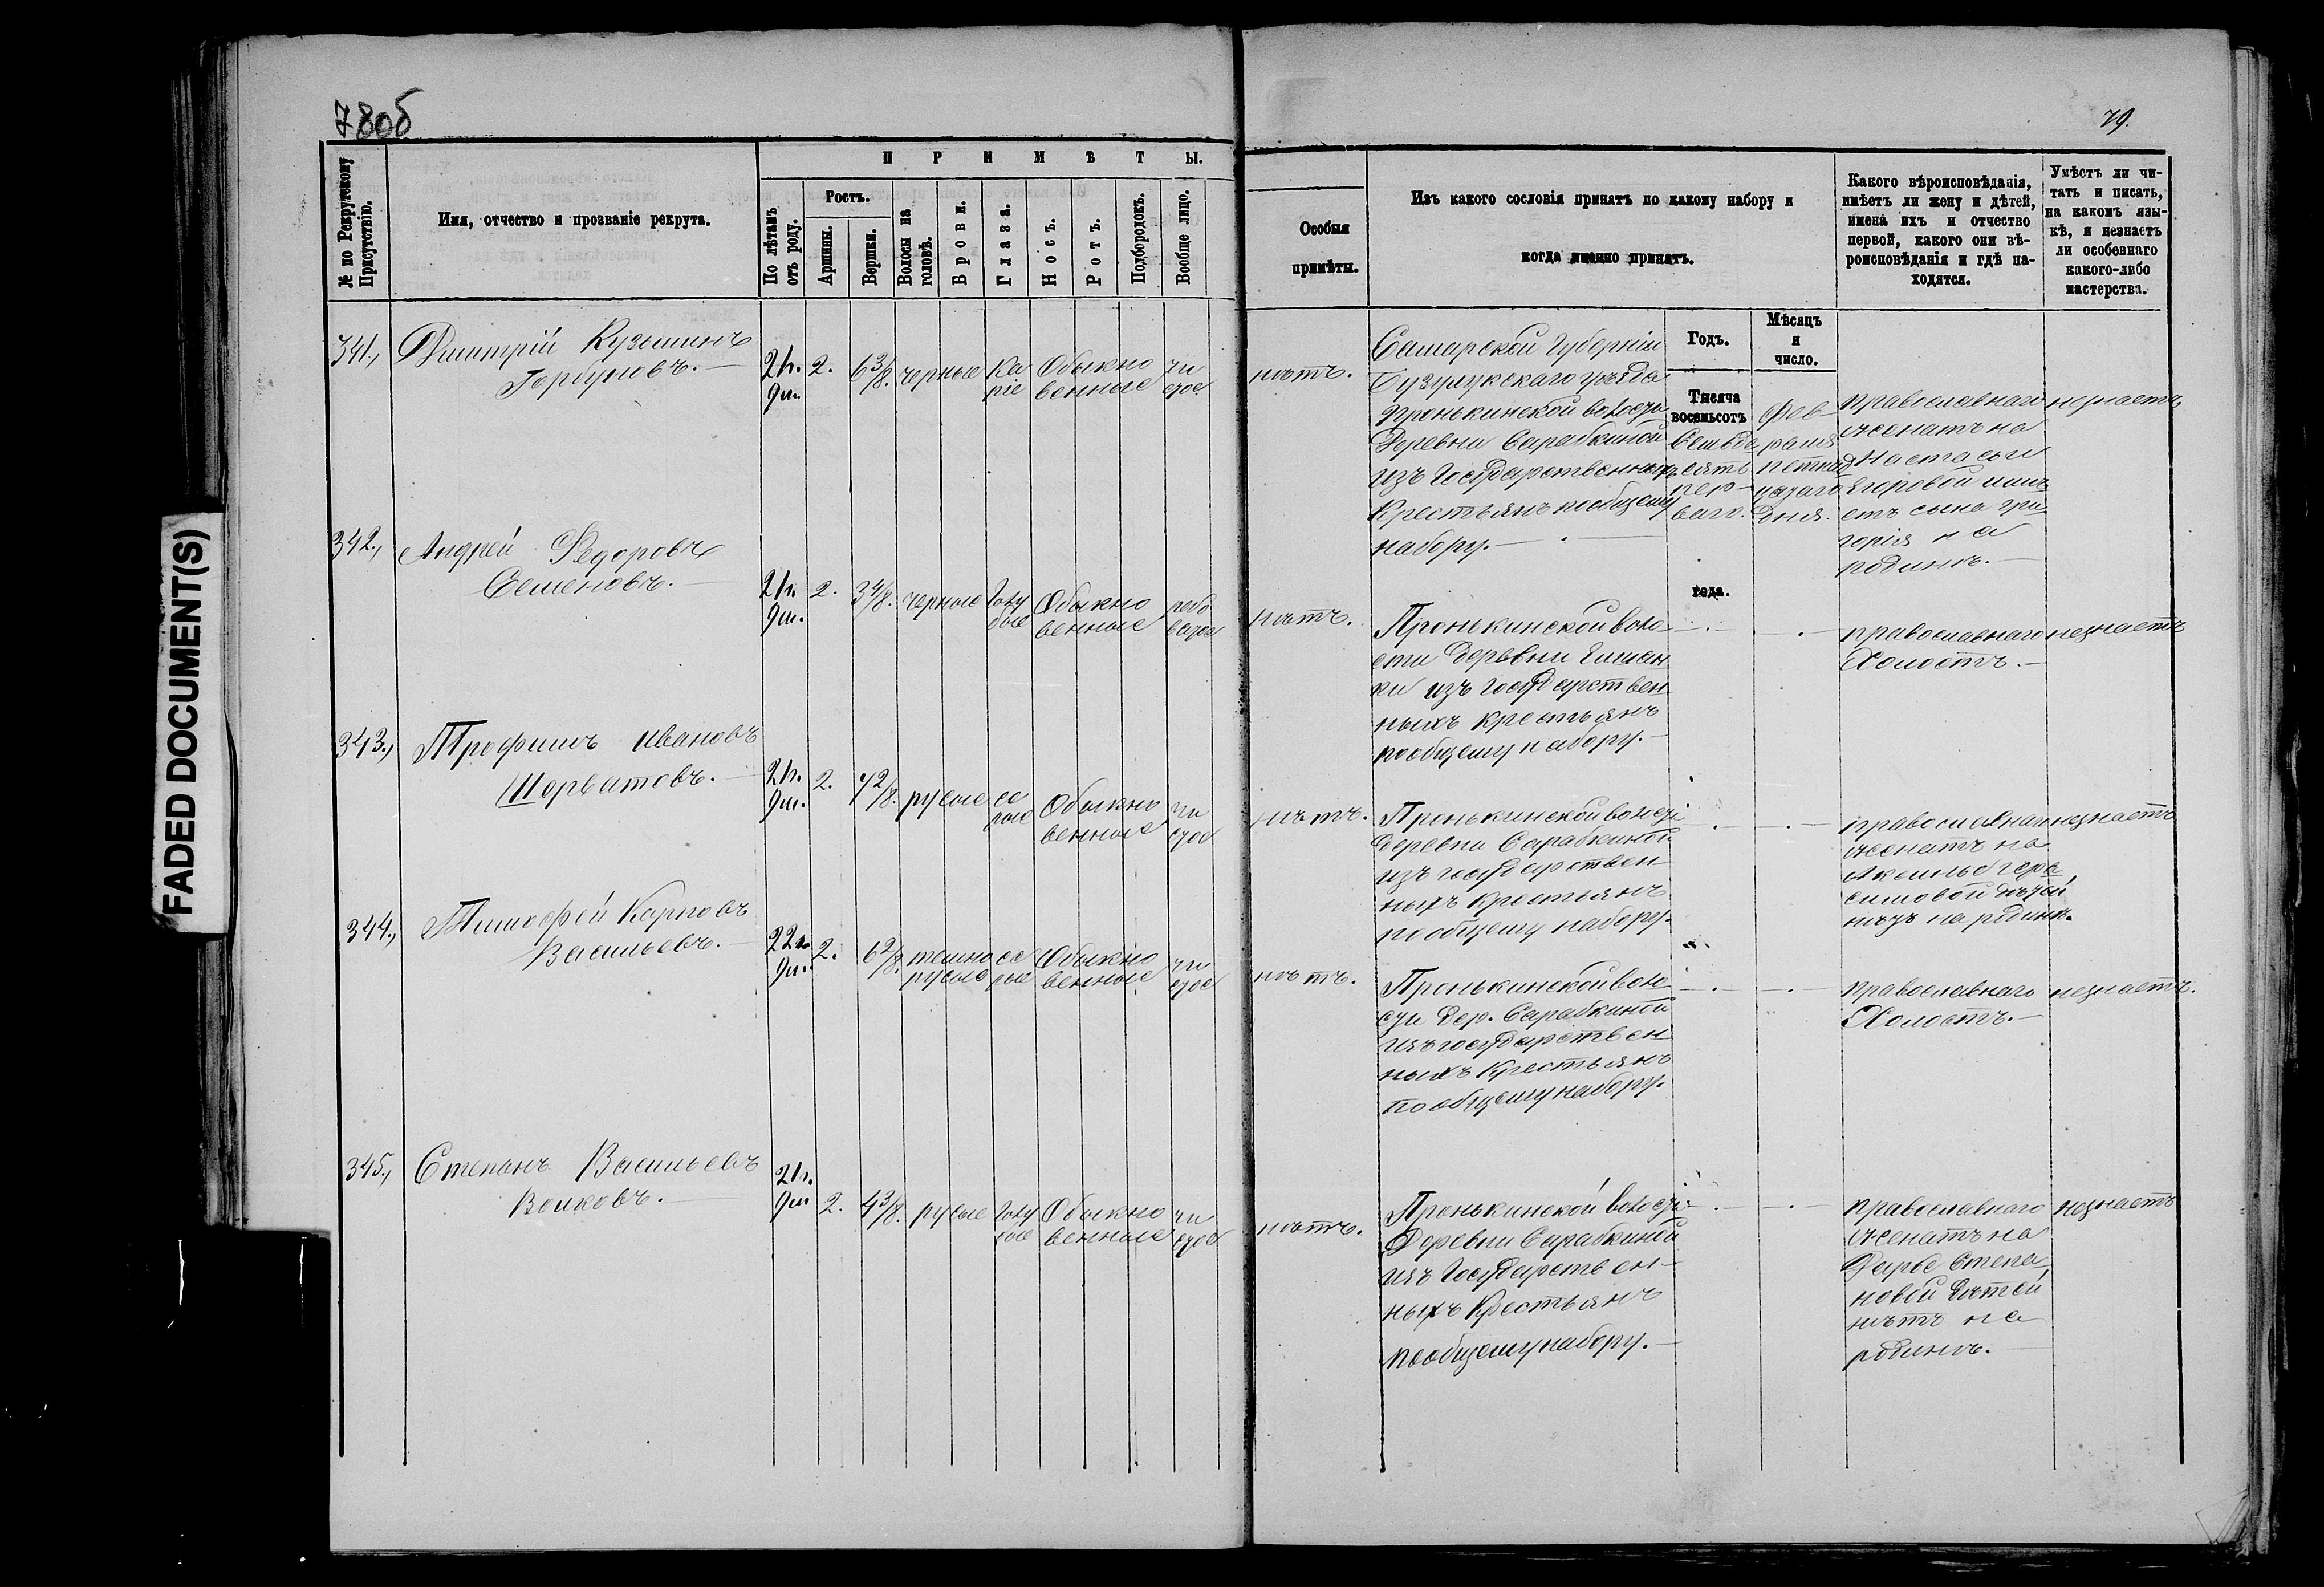 78об
79.
FADED DOCUMENT(S)
№ по Рекрутскому Присутствію.
Имя, отчество и прозваніе рекрута.
ПРИМѢТЫ.
По лѣтамъ отъ роду.
Ростъ.
Аршины.
Вершки.
Волосы на головѣ.
Брови.
Глаза.
Носъ.
Ротъ.
Подбородокъ.
Вообще лицо.
Особыя
примѣты.
Изъ какого сословія принятъ по какому набору и
когда именно принятъ.
Какого вѣроисповѣданія,
имѣетъ ли жену и дѣтей,
имена ихъ и отчество
первой, какого они вѣ-
роисповѣданія и гдѣ на-
ходятся.
Умѣетъ ли чи-
тать и писать,
на какомъ язы-
кѣ, и незнаетъ
ли особеннаго
какого-либо
мастерства.
Годъ.
Мѣсяцъ
и
число.
Тысяча
восемьсотъ
Семьде
сятъ
пер-
ваго.
года.
Фев-
раля
петнад
цатаго
дня.
341., Дмитрій Кузминъ
Горбуновъ.
21г. 9м. 2. 6 3/8. черные Ка
ріе Обыкно
венные чи
стое
нѣтъ.
Самарской Губерніи
Бузулукскаго уѣзда
Пронькинской волости
Деревни Сарабкиной
изъ Государственныхъ
Крестьянъ пообщему
набору.
православнаго
женатъ на
Настасьи
Егоровой имѣ
етъ сына Гри
горія на
родинѣ.
незнаетъ
342., Андрей Федоровъ
Семеновъ.
21г. 9м. 2. 3 4/8. черные Голу
бые Обыкно
венные рябо
ватое
нѣтъ.
Пронькинской воло-
сти деревни Елшан
ки изъ государствен
ныхъ крестьянъ
пообщему набору.
православнаго
Холостъ.
незнаетъ
343., Трофимъ Ивановъ
21г. 9м. 2. 7 2/8. русые се
рые Обыкно
венные чи
стое
нѣтъ.
Пронькинской волости
Деревни Сарабкиной
изъ государствен-
ныхъ крестьянъ
пообщему набору.
православнаго
женатъ на
Аксиньѣ Гера
симовой дѣтей
нѣтъ на родинѣ.
незнаетъ
344., Тимофей Карповъ
Васильевъ.
22г. 9м. 2. 6 2/8. темно
русые се
рые Обыкно
венные чи
стое
нѣтъ.
Пронькинской воло
сти дер. Сарабкиной
изъ государствен
ныхъ Крестьянъ
пообщему набору.
православнаго
Холостъ.
незнаетъ.
345., Степанъ Васильевъ
Волковъ.
21г. 9м 2. 4 3/8. русые Голу
бые Обыкно
венные чи
стое
нѣтъ.
Пронькинской волости
Деревни Сарабкиной
изъ Государствен-
ныхъ Крестьянъ
пообщему набору.
православнаго
женатъ на
Дарье Степа
новой дѣтей
нѣтъ на
родинѣ.
незнаетъ